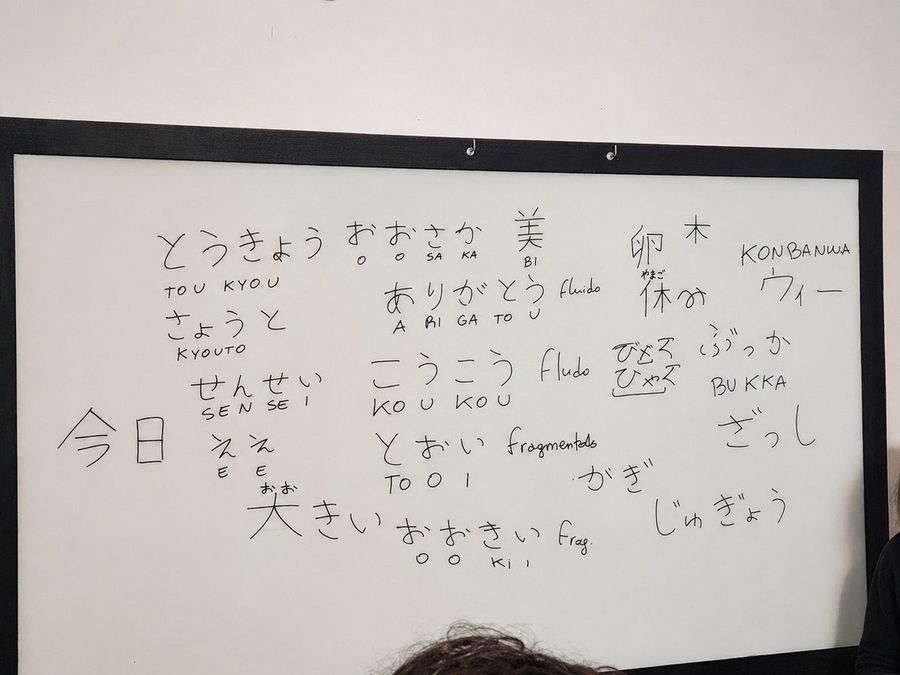 とうきょう
TOU KYOU
さょうと
KYOUTO
せんせい
SEN SE I
今日
ええ
E E
おお
大きい
おおさか
O O SA KA
美
BI
ありがとう fluido
A RI GA TO U
こうこう fludo
KO U KO U
とおい fragmentado
TO O I
おおきい frag.
O O Ki i
卵 木
やまご
休み
びょく
ひゃく
がぎ
KONBANWA
ウィー
ぶっか
BUKKA
ざっし
じゅぎょう